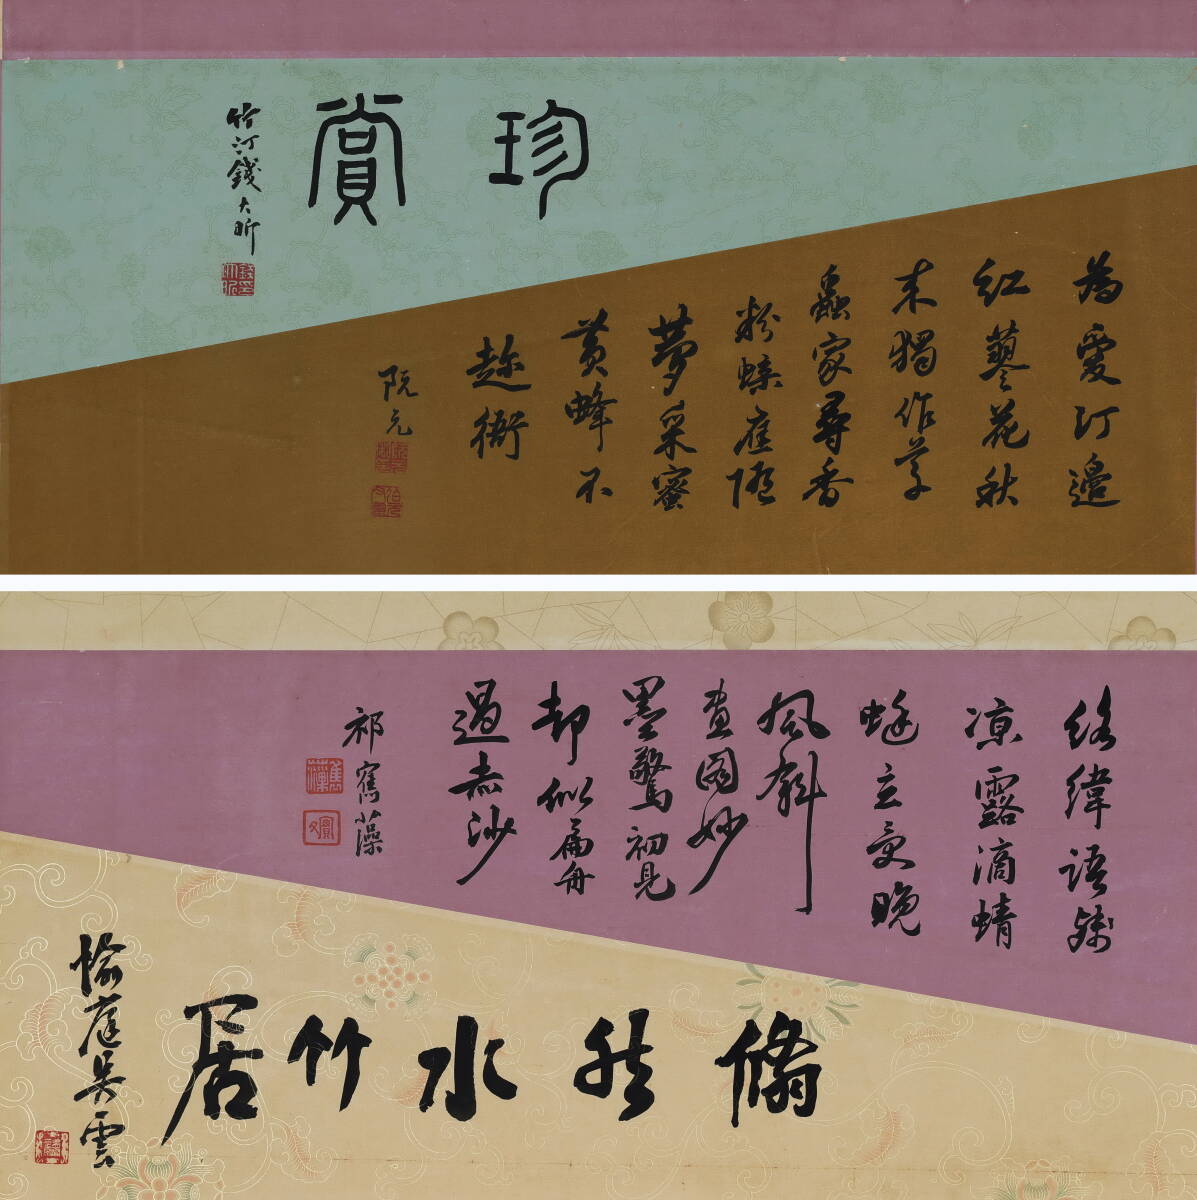 珍賞
竹汀錢大昕
為愛汀邊
紅蓼花秋
来獨作草
蟲家尋香
粉蝶應隨
夢采蜜
黃蜂不
趁衙
阮元
絡緯語殘
凉露滴蜻
蜓立受晚
風斜
畫圖妙
墨驚初見
却似扁舟
過赤沙
祁寯藻
翛然水竹居
愉庭吳雲